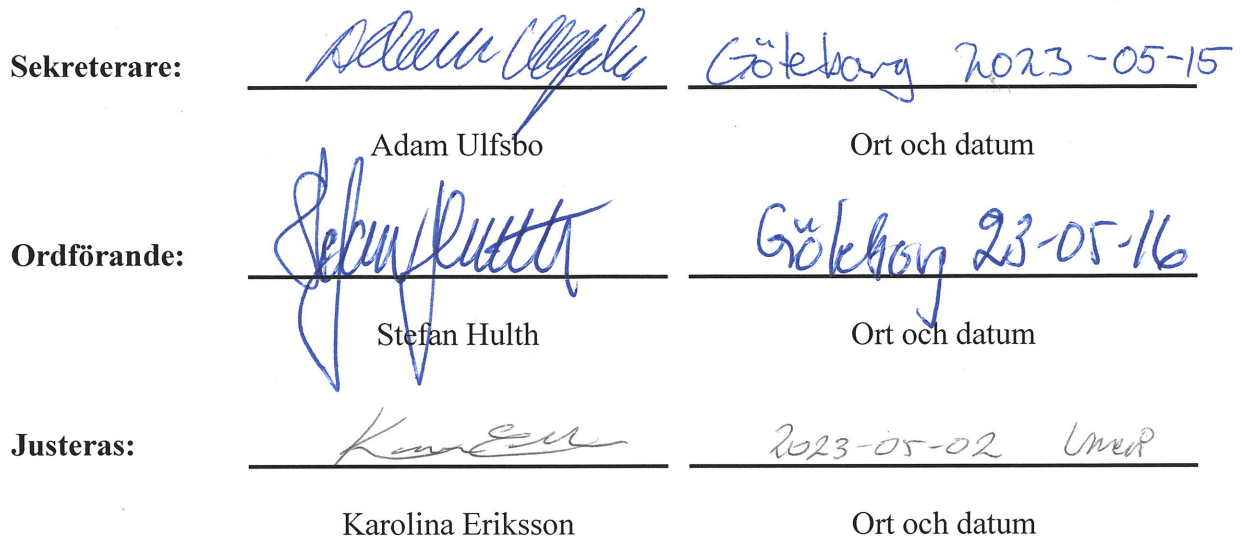 Sekreterare: Adam Ulfsbo Göteborg 2023-05-15
Adam Ulfsbo Ort och datum
Ordförande: Stefan Hulth Göteborg 23-05-16
Stefan Hulth Ort och datum
Justeras: 2023-05-02 Umeå
Karolina Eriksson Ort och datum